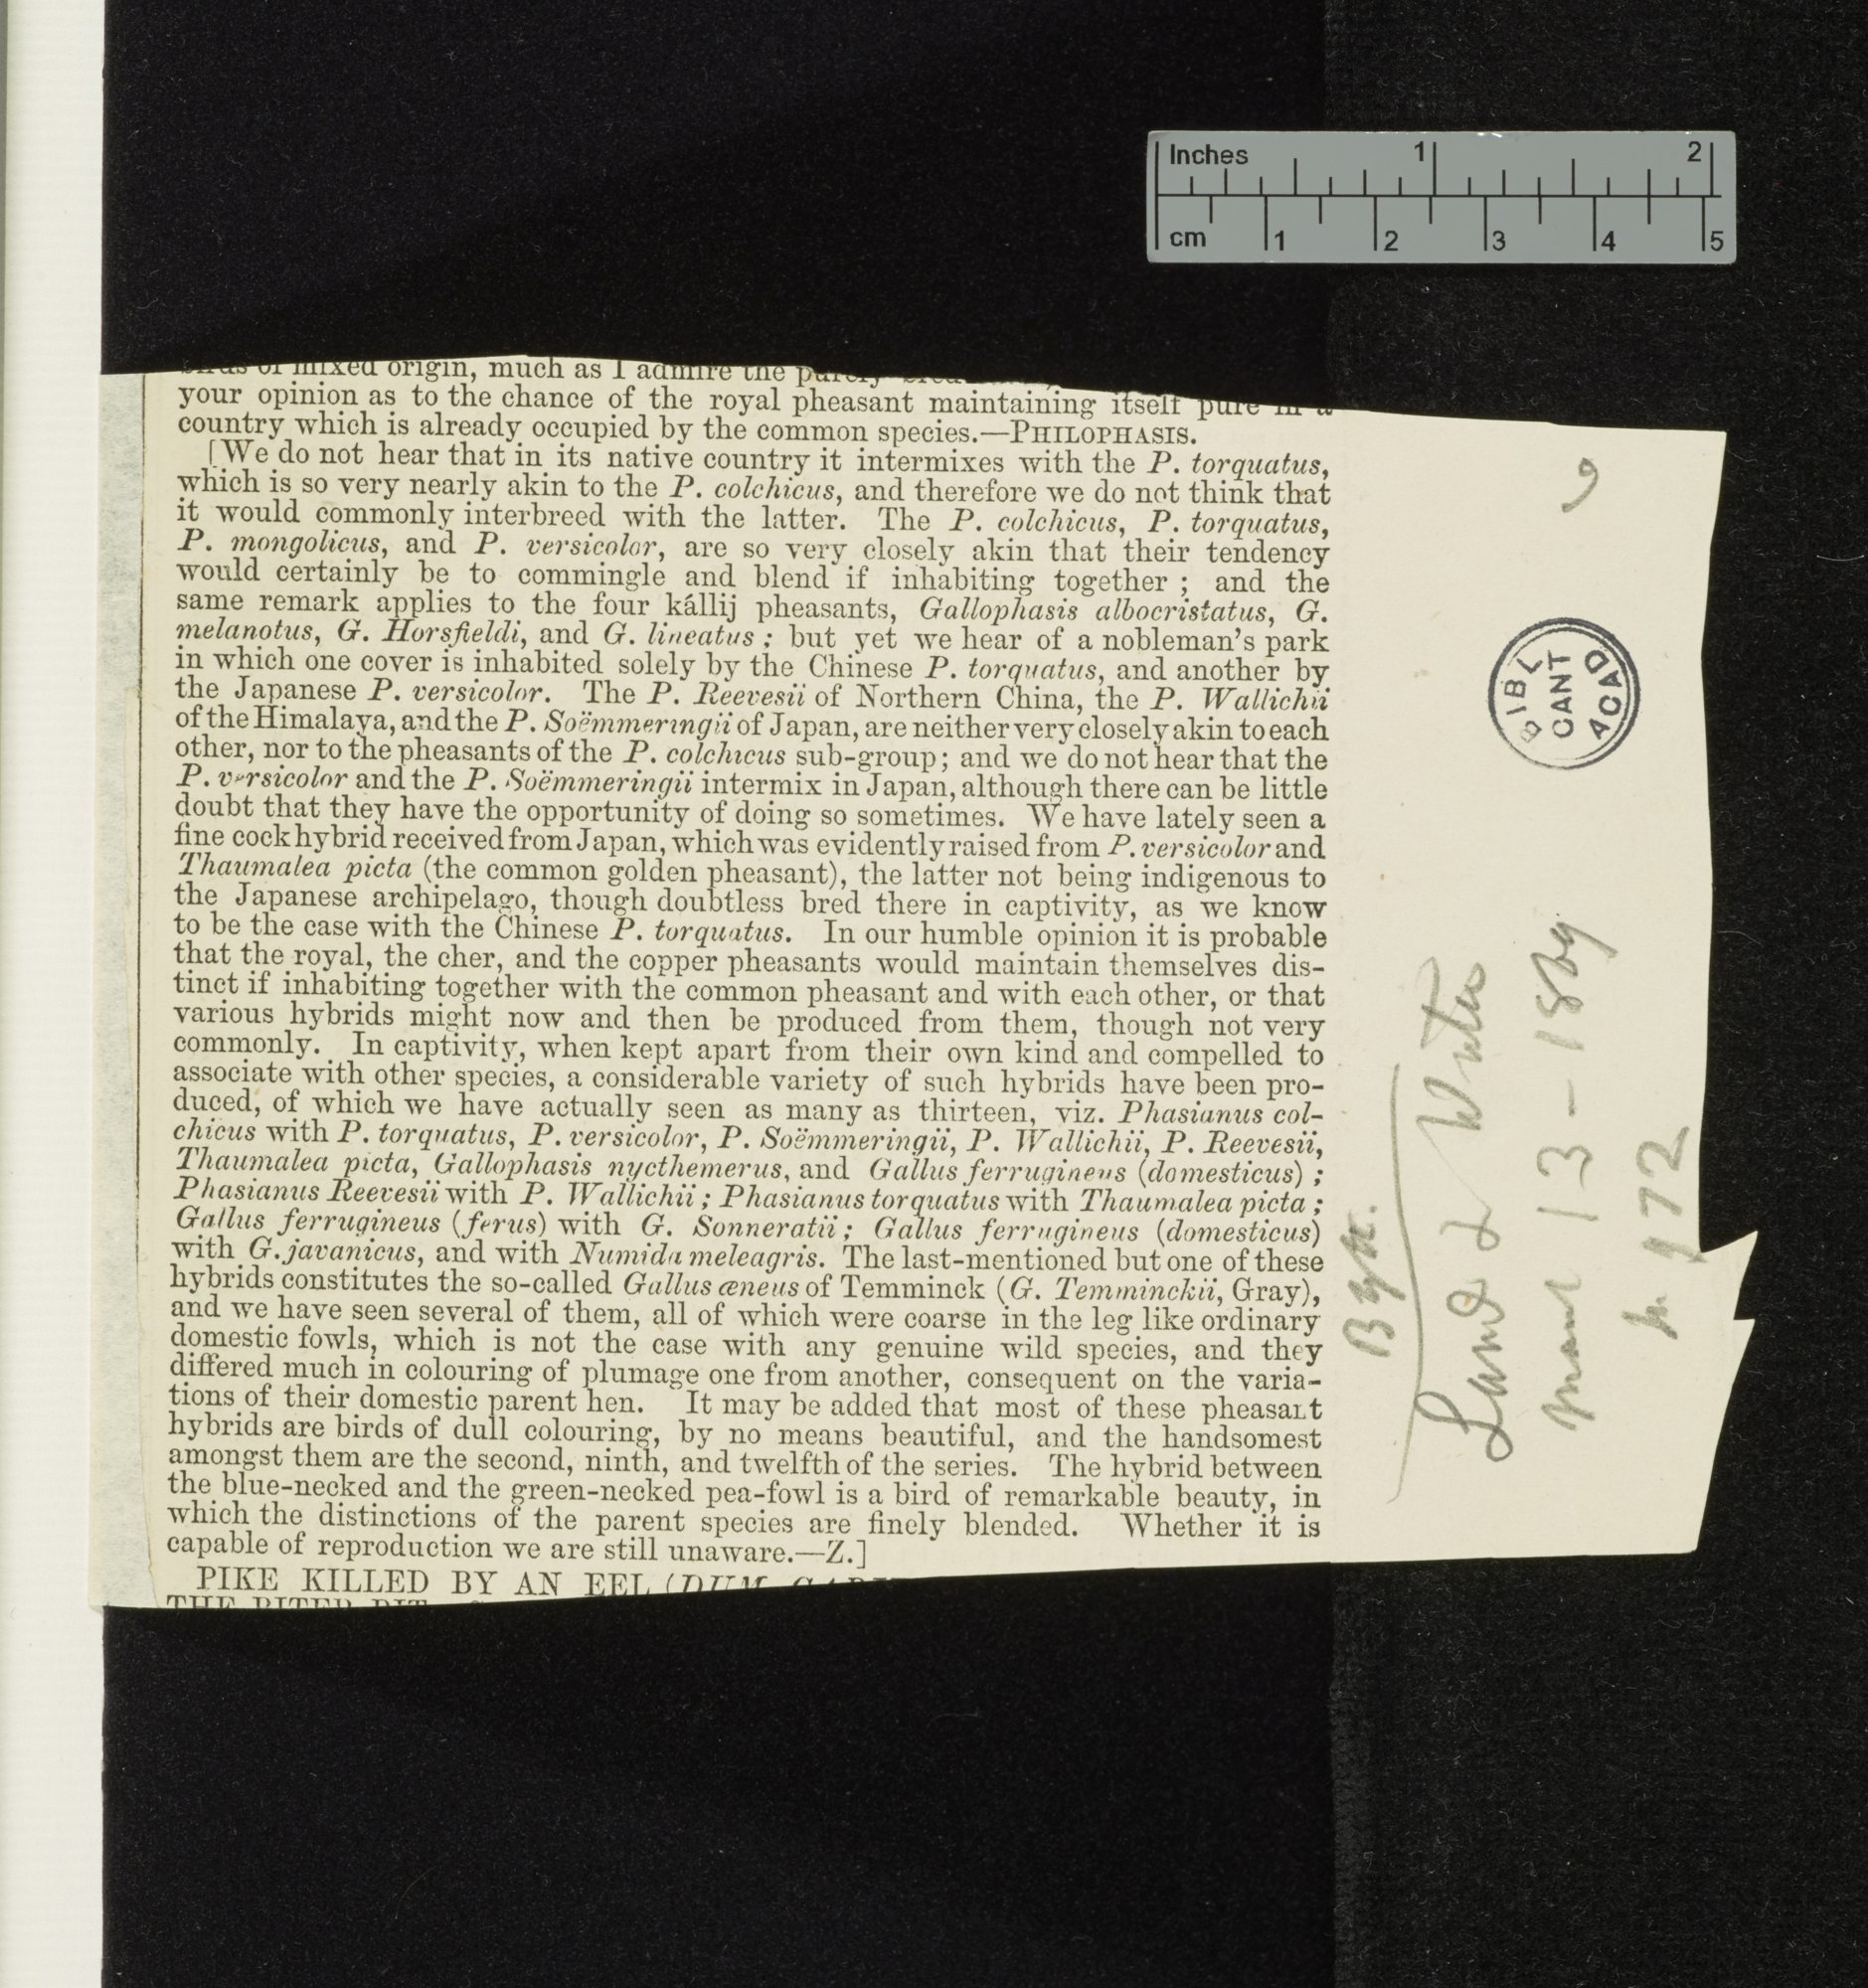 Inches 1 2
cm 1 2 3 4 5
birds of mixed origin, much as I admire the purely
your opinion as to the chance of the royal pheasant maintaining itself pure in a
country which is already occupied by the common species.—PHILOPHASIS.
[We do not hear that in its native country it intermixes with the P. torquatus,
which is so very nearly akin to the P. colchicus, and therefore we do not think that
it would commonly interbreed with the latter. The P. colchicus, P. torquatus,
P. mongolicus, and P. versicolor, are so very closely akin that their tendency
would certainly be to commingle and blend if inhabiting together ; and the
same remark applies to the four kállij pheasants, Gallophasis albocristatus, G.
melanotus, G. Horsfieldi, and G. lineatus ; but yet we hear of a nobleman's park
in which one cover is inhabited solely by the Chinese P. torquatus, and another by
the Japanese P. versicolor. The P. Reevesii of Northern China, the P. Wallichii
of the Himalaya, and the P. Soëmmeringii of Japan, are neither very closely akin to each
other, nor to the pheasants of the P. colchicus sub-group; and we do not hear that the
P. versicolor and the P. Soëmmeringii intermix in Japan, although there can be little
doubt that they have the opportunity of doing so sometimes. We have lately seen a
fine cock hybrid received from Japan, which was evidently raised from P. versicolor and
Thaumalea picta (the common golden pheasant), the latter not being indigenous to
the Japanese archipelago, though doubtless bred there in captivity, as we know
to be the case with the Chinese P. torquatus. In our humble opinion it is probable
that the royal, the cher, and the copper pheasants would maintain themselves dis-
tinct if inhabiting together with the common pheasant and with each other, or that
various hybrids might now and then be produced from them, though not very
commonly. In captivity, when kept apart from their own kind and compelled to
associate with other species, a considerable variety of such hybrids have been pro-
duced, of which we have actually seen as many as thirteen, viz. Phasianus col-
chicus with P. torquatus, P. versicolor, P. Soëmmeringii, P. Wallichii, P. Reevesii,
Thaumalea picta, Gallophasis nycthemerus, and Gallus ferrugineus (domesticus) ;
Phasianus Reevesii with P. Wallichii ; Phasianus torquatus with Thaumalea picta ;
Gallus ferrugineus (ferus) with G. Sonneratii ; Gallus ferrugineus (domesticus)
with G. javanicus, and with Numida meleagris. The last-mentioned but one of these
hybrids constitutes the so-called Gallus æneus of Temminck (G. Temminckii, Gray),
and we have seen several of them, all of which were coarse in the leg like ordinary
domestic fowls, which is not the case with any genuine wild species, and they
differed much in colouring of plumage one from another, consequent on the varia-
tions of their domestic parent hen. It may be added that most of these pheasant
hybrids are birds of dull colouring, by no means beautiful, and the handsomest
amongst them are the second, ninth, and twelfth of the series. The hybrid between
the blue-necked and the green-necked pea-fowl is a bird of remarkable beauty, in
which the distinctions of the parent species are finely blended. Whether it is
capable of reproduction we are still unaware.—Z.]
PIKE KILLED BY AN EEL
THE BITER BIT
Land & Water
13 - 1869
172
BIBL
CANT
ACAD
9